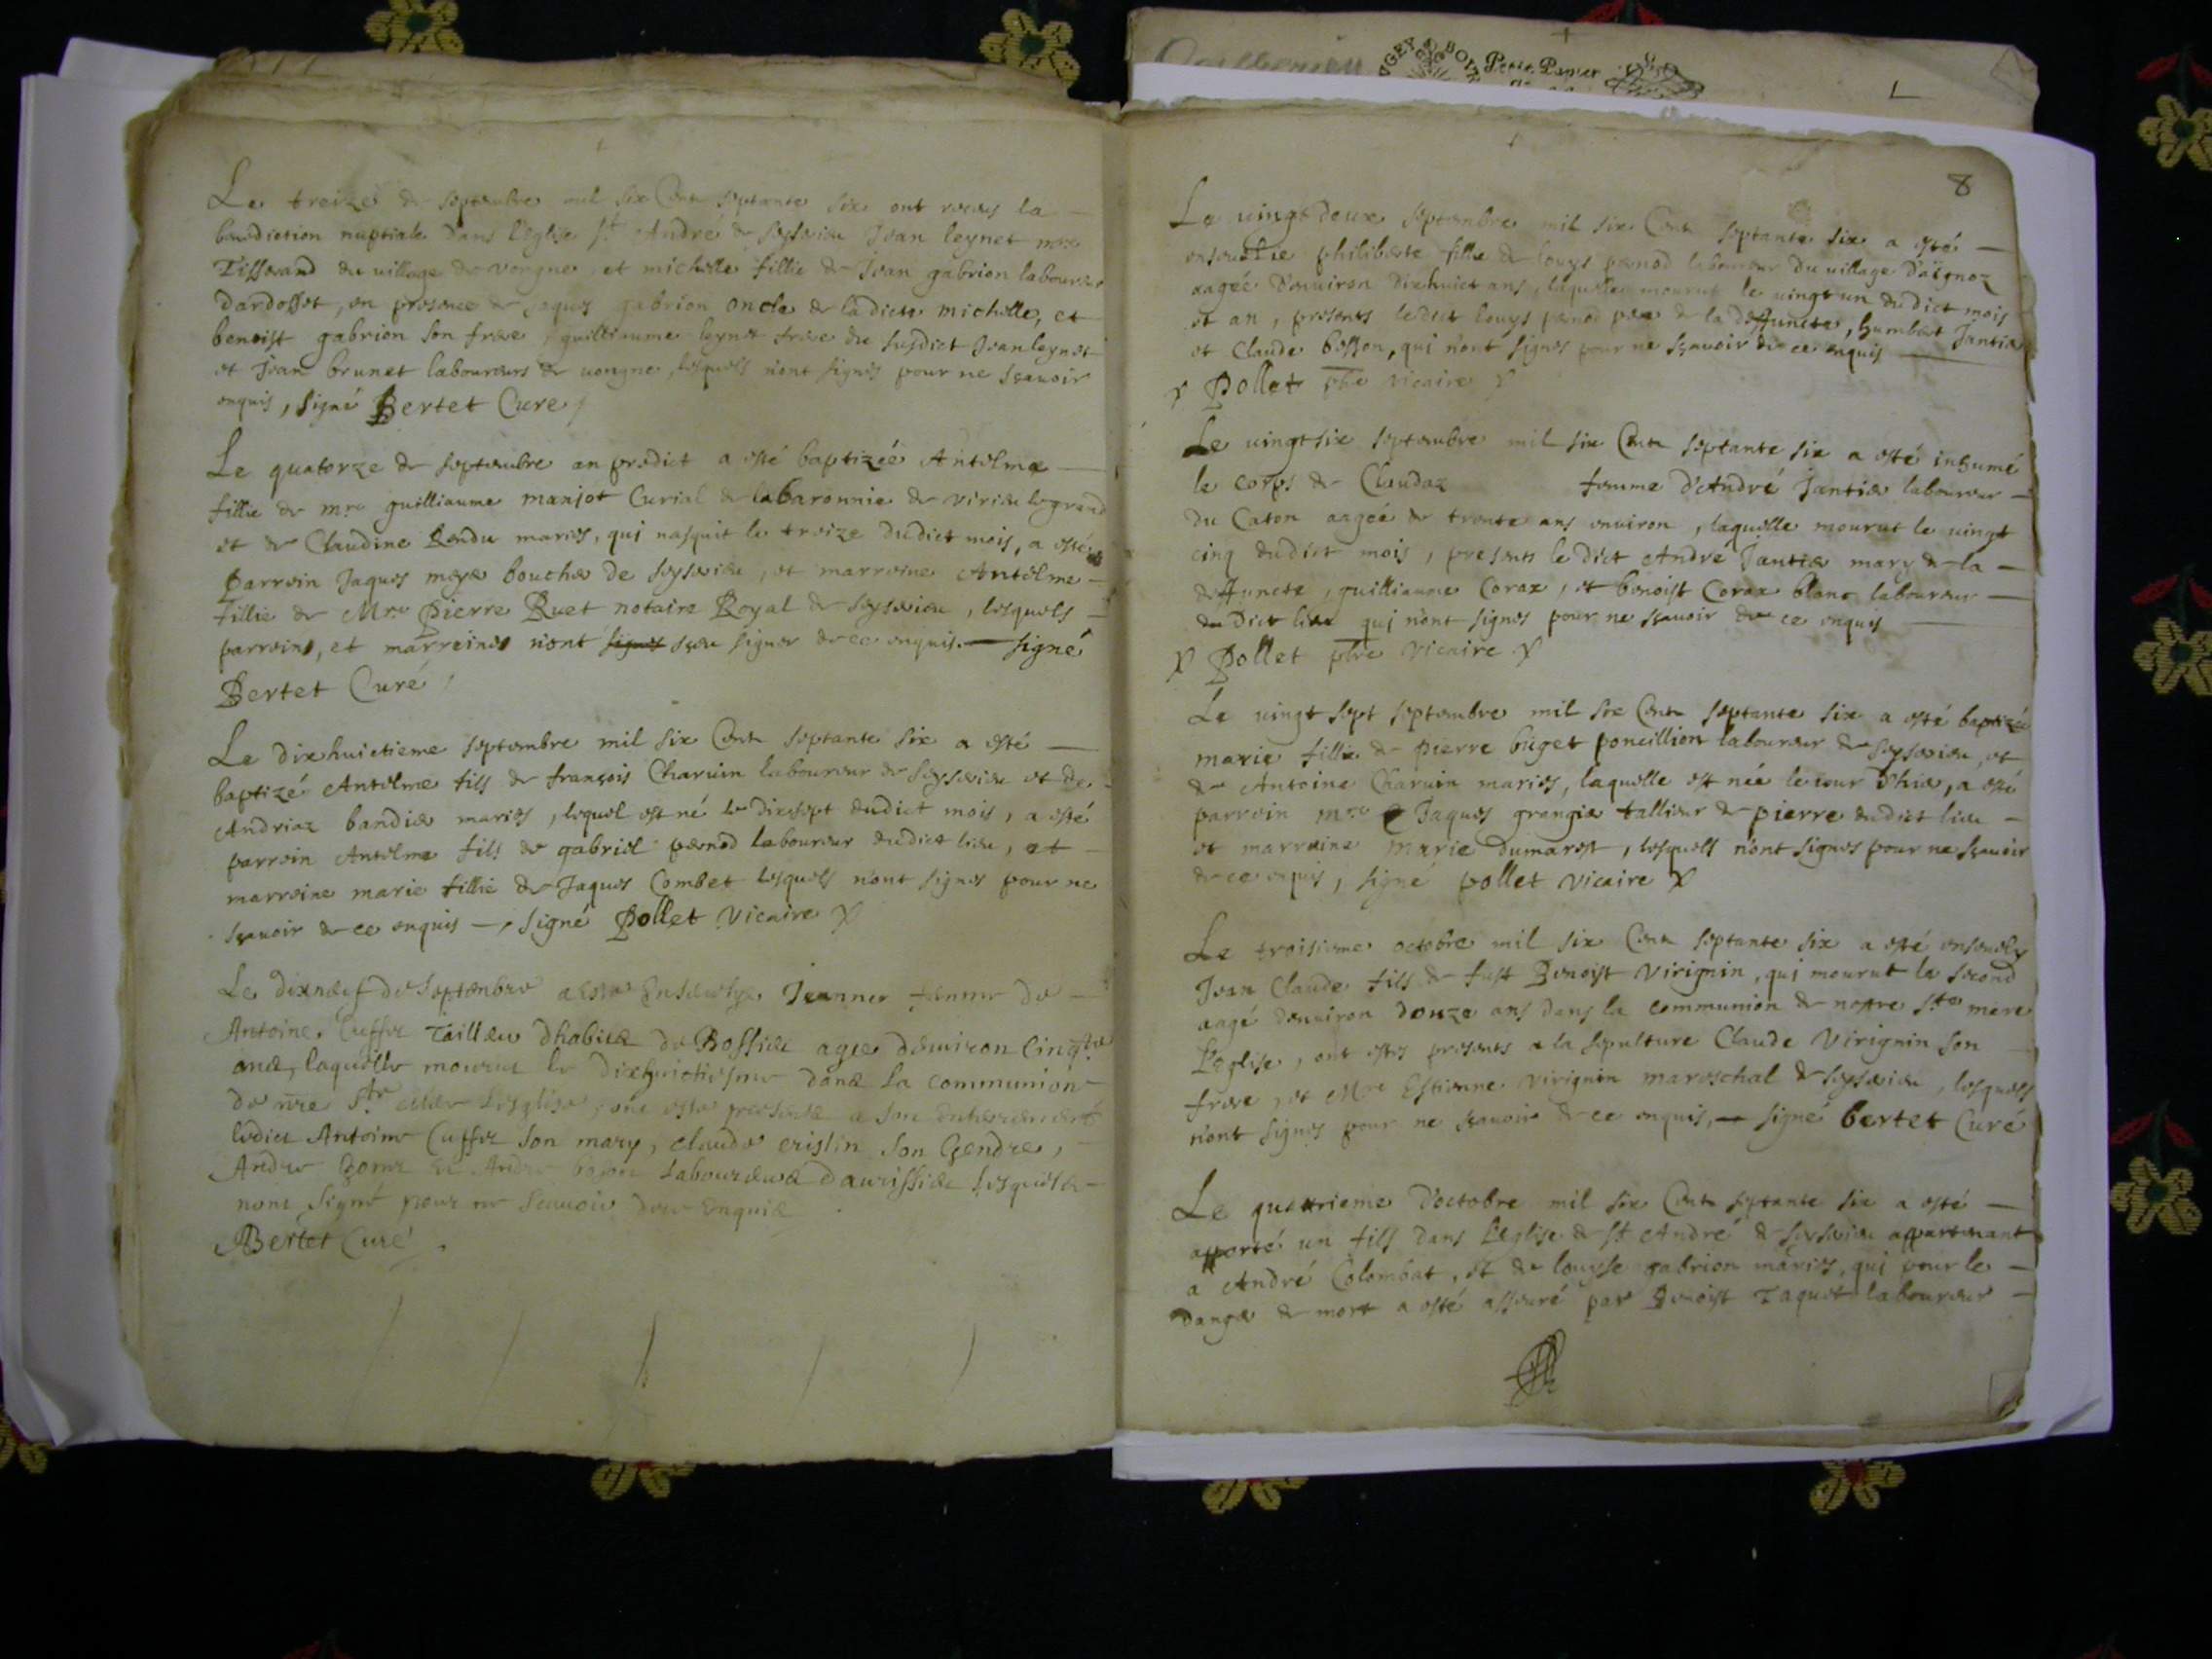 Le treize de septembre mil six Cents septante six ont receus la
benediction nuptiale dans l'Eglise St André de seysieu Jean leynet mre
Tisserand du village de vongne, et michelle fillie de Jean gabrion laboureur
d'ardosset, en presence de jaques gabrion oncle de la dicte michelle, et
benoist gabrion son frere, guilliaume leynet frere du susdict Jean leynet
et Jean brunet laboureurs de vongne, lesquels n'ont signés pour ne sçavoir
enquis, signé Bertet Curé
Le quatorze de septembre an predict a esté baptizéé Antelme
fillie de mre guilliaume manjot Curial de la baronnie de virieu le grand
et de Claudine Rendu mariés, qui nasquit le treize dudict mois, a esté
parrein Jaques meyer boucher de seysieu, et marreine Antelme
fillie de Mre Pierre Ruet notaire Royal de seysieu, lesquels
parreins, et marreines n'ont signés sçeu signer de ce enquis. signé
Bertet Curé
Le dixhuictieme septembre mil six Cents septante six a esté
baptizé Antelme fils de françois Charvin laboureur de seysieu et de
Andriaz bandier mariés, lequel est né le dixsept dudict mois, a esté
parrein Antelme fils de gabriel pernod laboureur dudict lieu, et
marreine marie fillie de Jaques Combet lesquels n'ont signés pour ne
sçavoir de ce enquis, signé Pollet Vicaire
Le dixneuf de Septembre a esté Ensevelye Jeanne femme de
Antoine Cuffet Tailleur d'habits de Rossieu agee d'environ cinqte
ans, laquelle mourut le dixhuictiesme dans la communion
de nre Ste Mere l'esglise, ont esté presents a son enterrement
ledict Antoine Cuffet son mary, claude crislin son Gendre,
Andre et Andre laboureurs d'aurissieu lesquels
nont signé pour ne scavoir de ce enquis
Bertet Curé
8
Le vingtdeux septembre mil six Cents septante six a esté
ensevelie philiberte fillie de louys pernod laboureur du village d'aignoz
aagéé d'environ dixhuict ans, laquelle mourut le vingt un du dict mois
et an, presents ledict louys pernod pere de la deffuncte, humbert Jantier
et Claude besson, qui n'ont signés pour ne sçavoir de ce enquis
Pollet pbre vicaire
Le vingtsix septembre mil six Cents septante six a esté inhumé
le corps de Claudaz femme d'André Jantier laboureur
du Caton aagéé de trente ans environ, laquelle mourut le vingt
cinq dudict mois, presents le dict André Jantier mary de la
deffuncte, guilliaume Corax, et benoist Corax blanc laboureur
du dict lieu qui n'ont signés pour ne sçavoir de ce enquis
Pollet pbre Vicaire
Le vingt sept septembre mil six Cents septante six a esté baptizéé
marie fillie de pierre buget poncillion laboureur de seysieu, et
de Antoine Charvin mariés, laquelle est née le jour d'hier, a esté
parrein mre Jaques grangier tallieur de pierre dudict lieu
et marreine marie dumarest, lesquels n'ont signés pour ne sçavoir
de ce enquis, signé pollet vicaire
Le troisieme octobre mil six Cents septante six a esté ensevely
Jean Claude fils de fust Benoist Virignin, qui mourut le second
aagé d'environ douze ans dans la communion de nostre Ste mere
l'Eglise, ont estés presents a la sepulture Claude Virignin son
frere, et Mre Estienne virignin mareschal de seysieu, lesquels
n'ont signés pour ne sçavoir de ce enquis, signé bertet Curé
Le quattrieme d'octobre mil six Cents septante six a esté
apporté un fils dans l'Eglise de St André de seysieu appartenant
a André Colombat, et de louyse gabrion mariés, qui pour le
danger de mort a esté asseuré par Benoist Taquet laboureur